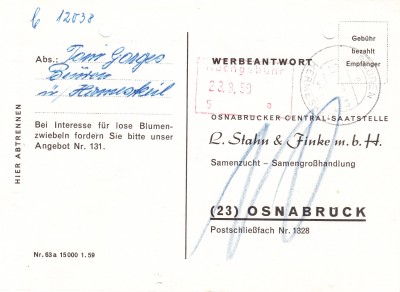 12038
Abs.: Toni Gorges
Büren
HIER ABTRENNEN
Bei Interesse für lose Blumen-
zwiebeln fordern Sie bitte unser
Angebot Nr. 131.
Nr. 63a 15000 1. 59
WERBEANTWORT
Gebühr
bezahlt
Empfänger
23.9.59
5 a
OSNABRÜCKER CENTRAL-SAATSTELLE
L. Stahn & Finke m. b. H.
Samenzucht – Samengroßhandlung
(23) OSNABRÜCK
Postschließfach Nr. 1328